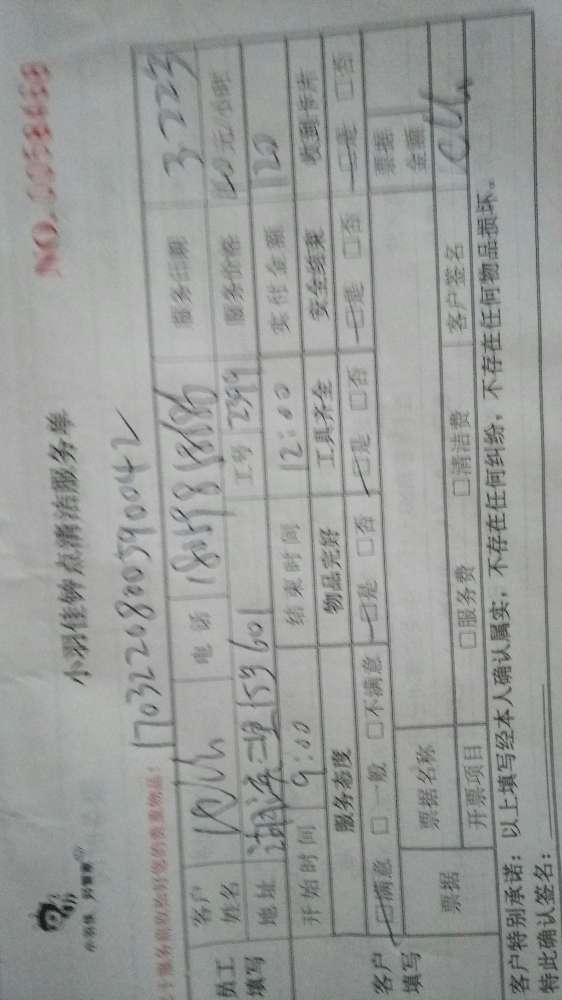 小羽佳 到家啦
小羽佳钟点清洁服务单
NO. 0058458
170322080059004 2
员工填写
客户姓名 电话 18059818186 服务日期 3.22
地址 601 工号 2399 服务价格 40元/小时
开始时间 9:00 结束时间 12:00 实付金额 120
服务态度 物品完好 工具齐全 安全结束 收到卡片
客户填写
□满意 □一般 □不满意 □是 □否 □是 □否 □是 □否 □是 □否
票据 票据名称 票据金额
开票项目 □服务费 □清洁费 客户签名
客户特别承诺：以上填写经本人确认属实，不存在任何纠纷，不存在任何物品损坏。
特此确认签名：